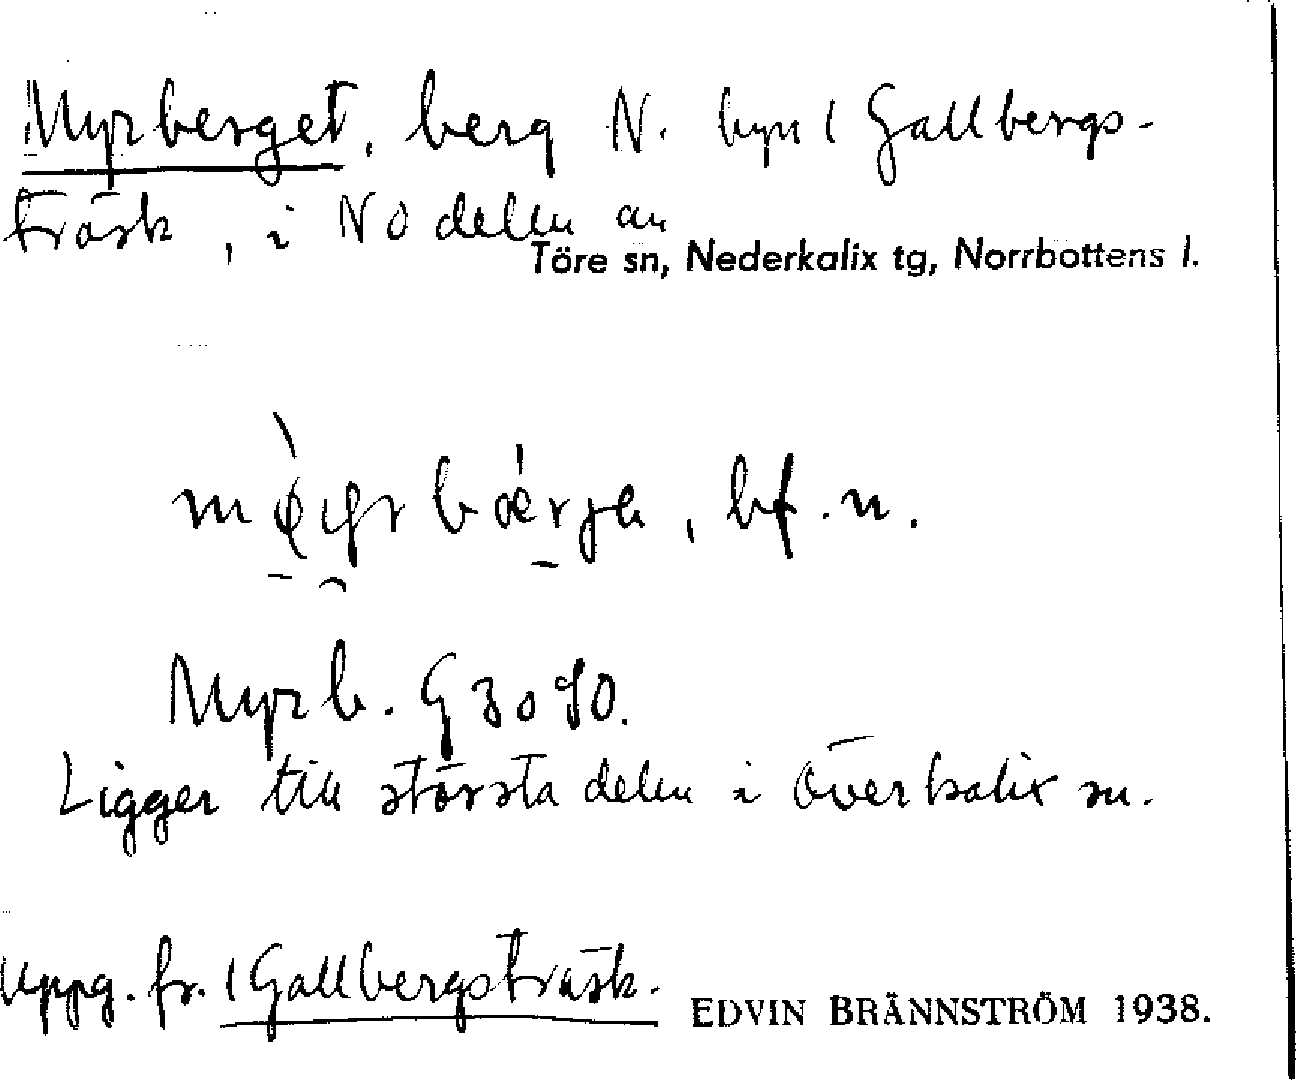 Myrberget, berg N. byn / Gallbergs-
träsk, i NO delen av
Töre sn, Nederkalix tg, Norrbottens l.
bf. n.
Myrb. G 3090.
Ligger till största delen i Överkalix sn.
Uppg. fr. / Gallbergsträsk.
EDVIN BRÄNNSTRÖM 1938.